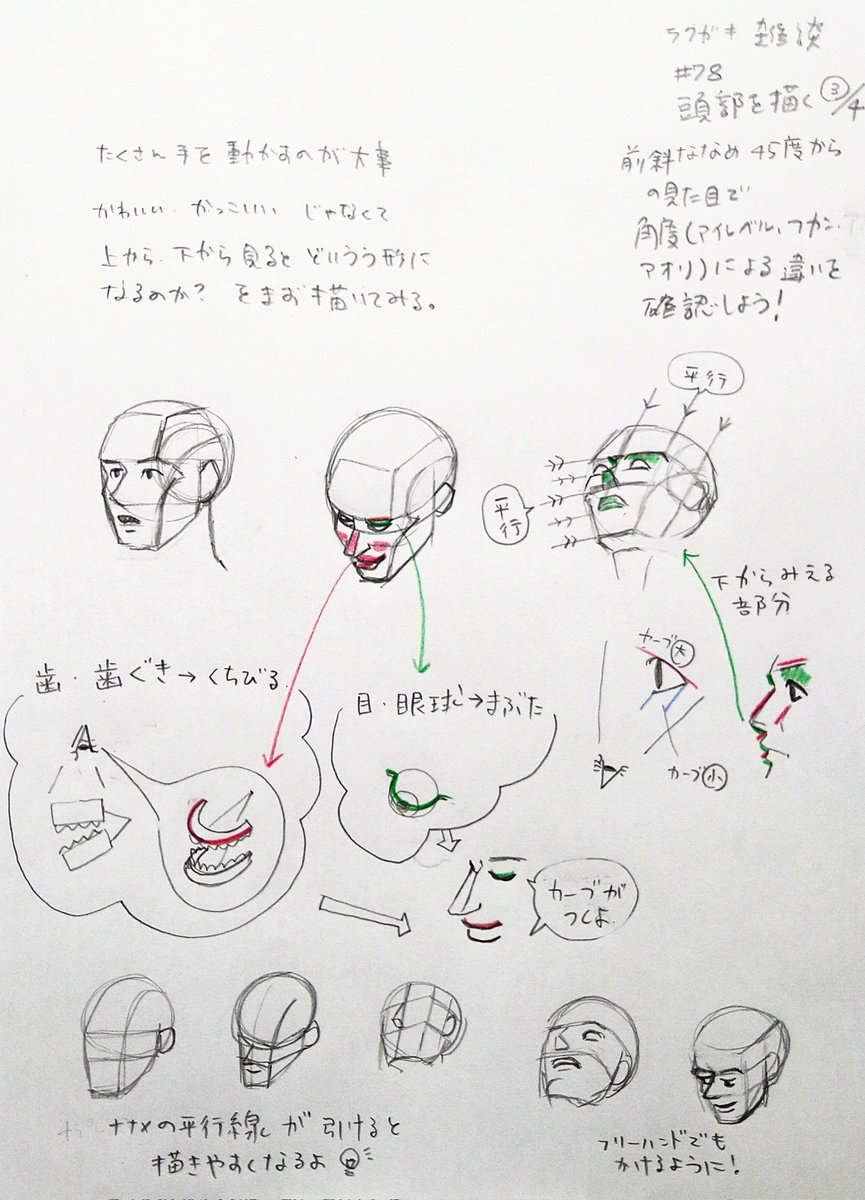 ラクガキ 雑談
#78
頭部を描く ③/4
たくさん手を動かすのが大事
かわいい・かっこいい じゃなくて
上から、下から見ると どいうう形に
なるのか? をまず描いてみる。
前斜ななめ 45度から
の見た目で
角度(アイレベル、フカン、
アオリ)による違いを
確認しよう!
平行
平行
下からみえる
部分
歯・歯ぐき→くちびる
目・眼球→まぶた
カーブ大
カーブ小
カーブが
つくよ
ナナメの平行線が引けると
描きやすくなるよ
フリーハンドでも
かけるように!